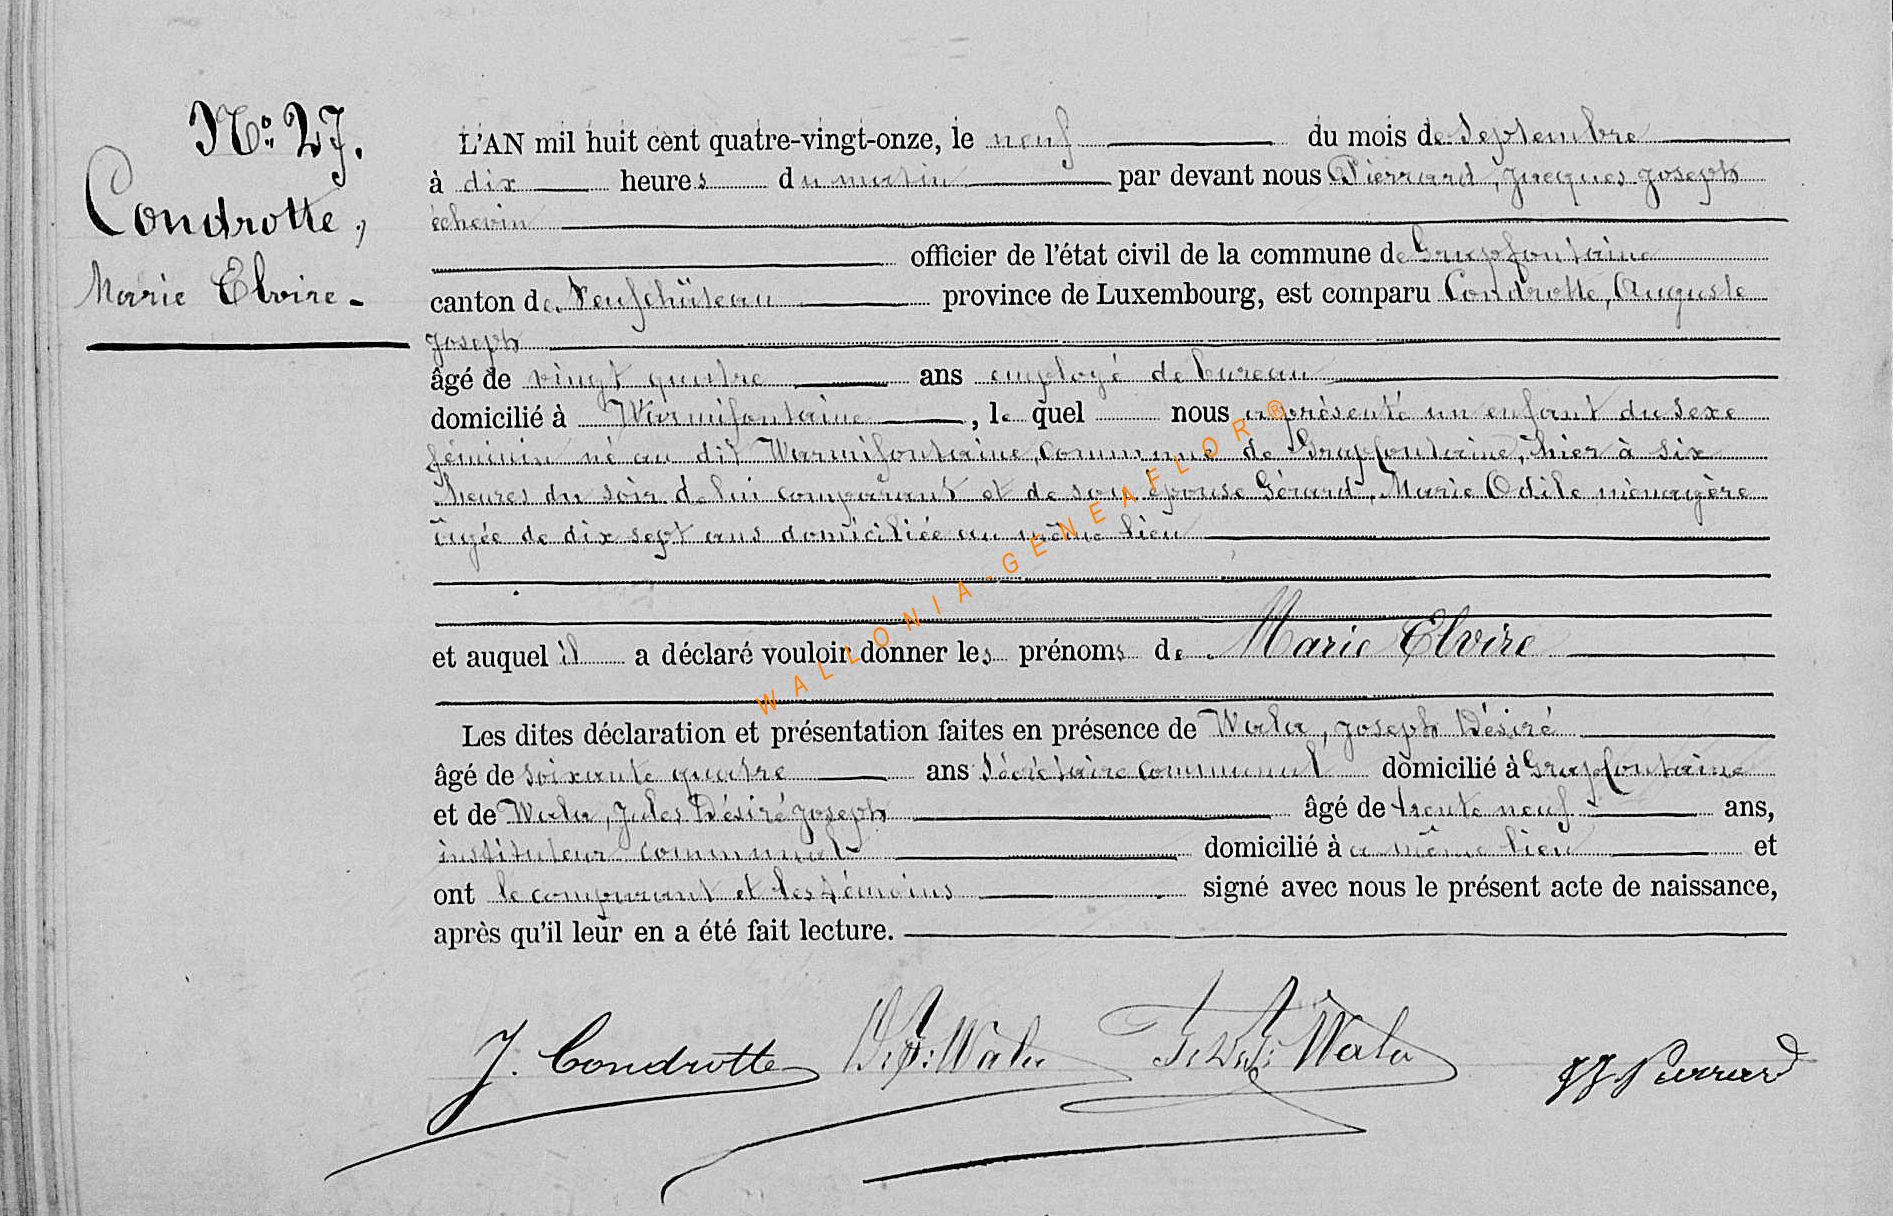 N° 27.
Condrotte,
Marie Elvire -
L'AN mil huit cent quatre-vingt-onze, le neuf du mois de Septembre
à dix heures du matin par devant nous Pierrard, Jacques Joseph
échevin
officier de l'état civil de la commune de Grapfontaine
canton de Neufchâteau province de Luxembourg, est comparu Condrotte, Auguste
Joseph
âgé de vingt quatre ans employé de bureau
domicilié à Warmifontaine, le quel nous a présenté un enfant du sexe
féminin né au dit Warmifontaine, commune de Grapfontaine, hier à six
heures du soir de lui comparant et de son épouse Gérard, Marie Odile ménagère
âgée de dix sept ans domiciliée au même lieu
et auquel il a déclaré vouloir donner les prénoms de Marie Elvire
Les dites déclaration et présentation faites en présence de Wala, Joseph Désiré
âgé de soixante quatre ans Sécrétaire communal domicilié à Grapfontaine
et de Wala, Jules Désiré Joseph âgé de trente neuf ans,
instituteur communal domicilié à même lieu et
ont le comparant et les témoins signé avec nous le présent acte de naissance,
après qu'il leur en a été fait lecture.
J. Condrotte Wala Wala JJ Pierrard
WALLONIA-GENEAFLOR ®